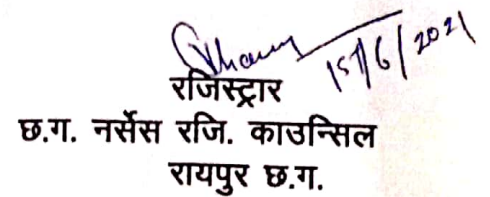 15/6/2021
रजिस्ट्रार
छ.ग. नर्सेस रजि. काउन्सिल
रायपुर छ.ग.